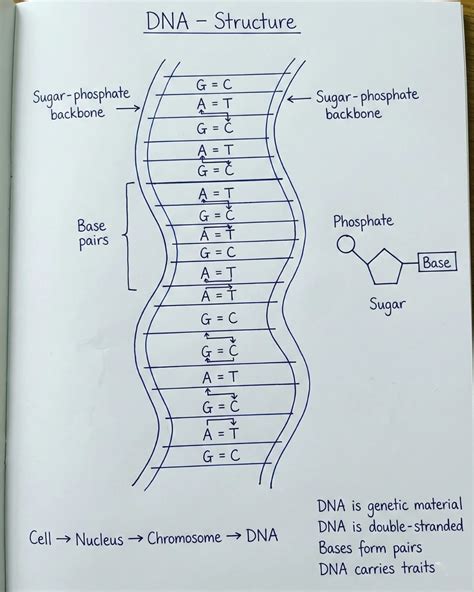 DNA – Structure
Sugar-phosphate
backbone
Sugar-phosphate
backbone
G = C
A = T
G = C
A = T
G = C
A = T
G = C
A = T
G = C
A = T
A = T
G = C
G = C
A = T
G = C
A = T
G = C
Base
pairs
Phosphate
Base
Sugar
Cell → Nucleus → Chromosome → DNA
DNA is genetic material
DNA is double-stranded
Bases form pairs
DNA carries traits